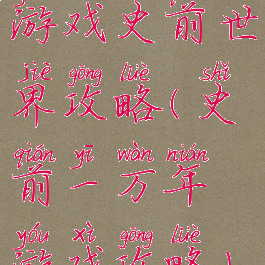 游戏史前世
jiè gōng lüè shǐ
界攻略(史
qián yī wàn nián
前一万年
yóu xì gōng lüè
游戏攻略)